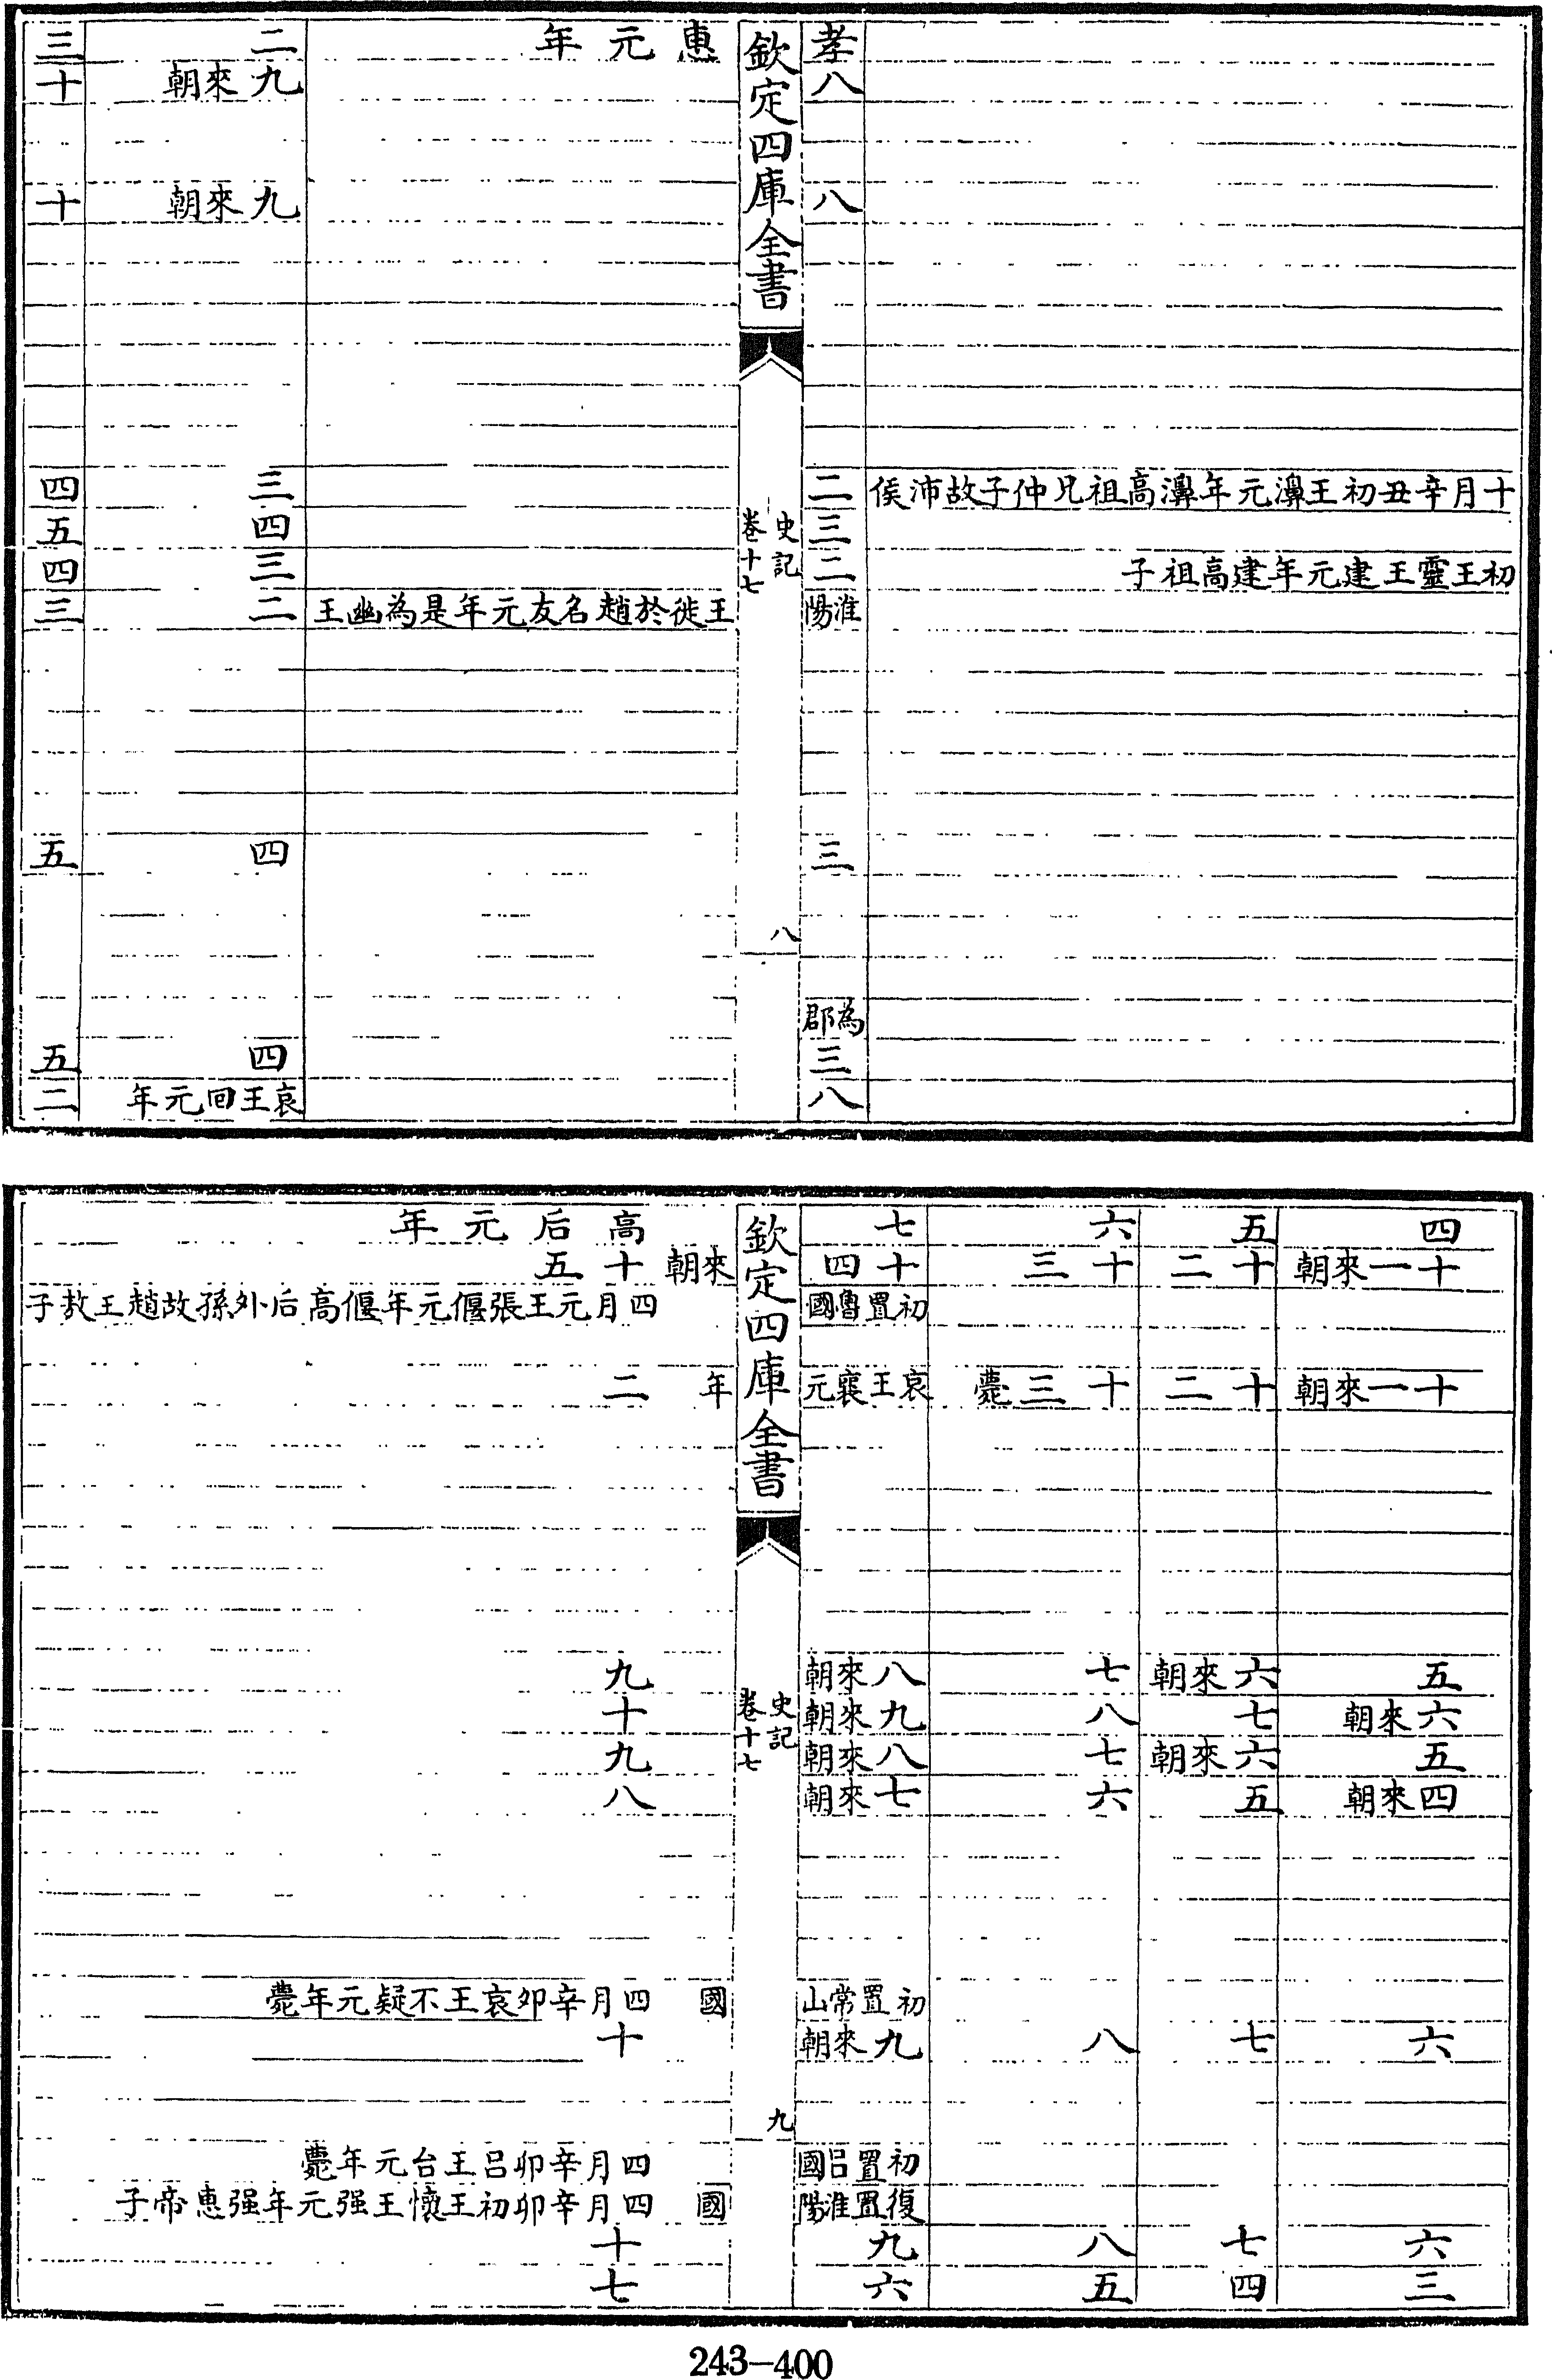 孝 惠元年 二 三
八 九來朝 十
八 九來朝 十
十月辛丑初王濞元年濞高祖兄仲子故沛侯 二 三 四
三 四 五
初王靈王建元年建高祖子 二 三 四
淮陽 王徙於趙名友元年是為幽王 二 三
三 四 五
為郡
三 四 五
八 哀王回元年 二
欽定四庫全書
史記
卷十七
八
四 五 六 七 高后元年
十一來朝 十二 十三 十四 來朝十五
初置魯國 四月元王張偃元年偃高后外孫故趙王敖子
十一來朝 十二 十三薨 哀王襄元 年 二
五 六來朝 七 八來朝 九
六來朝 七 八 九來朝 十
五 六來朝 七 八來朝 九
四來朝 五 六 七來朝 八
初置常山 國 四月辛卯哀王不疑元年薨
六 七 八 九來朝 十
初置呂國 四月辛卯呂王台元年薨
復置淮陽 國 四月辛卯初王懷王强元年强惠帝子
六 七 八 九 十
三 四 五 六 七
欽定四庫全書
史記
卷十七
九
243-400